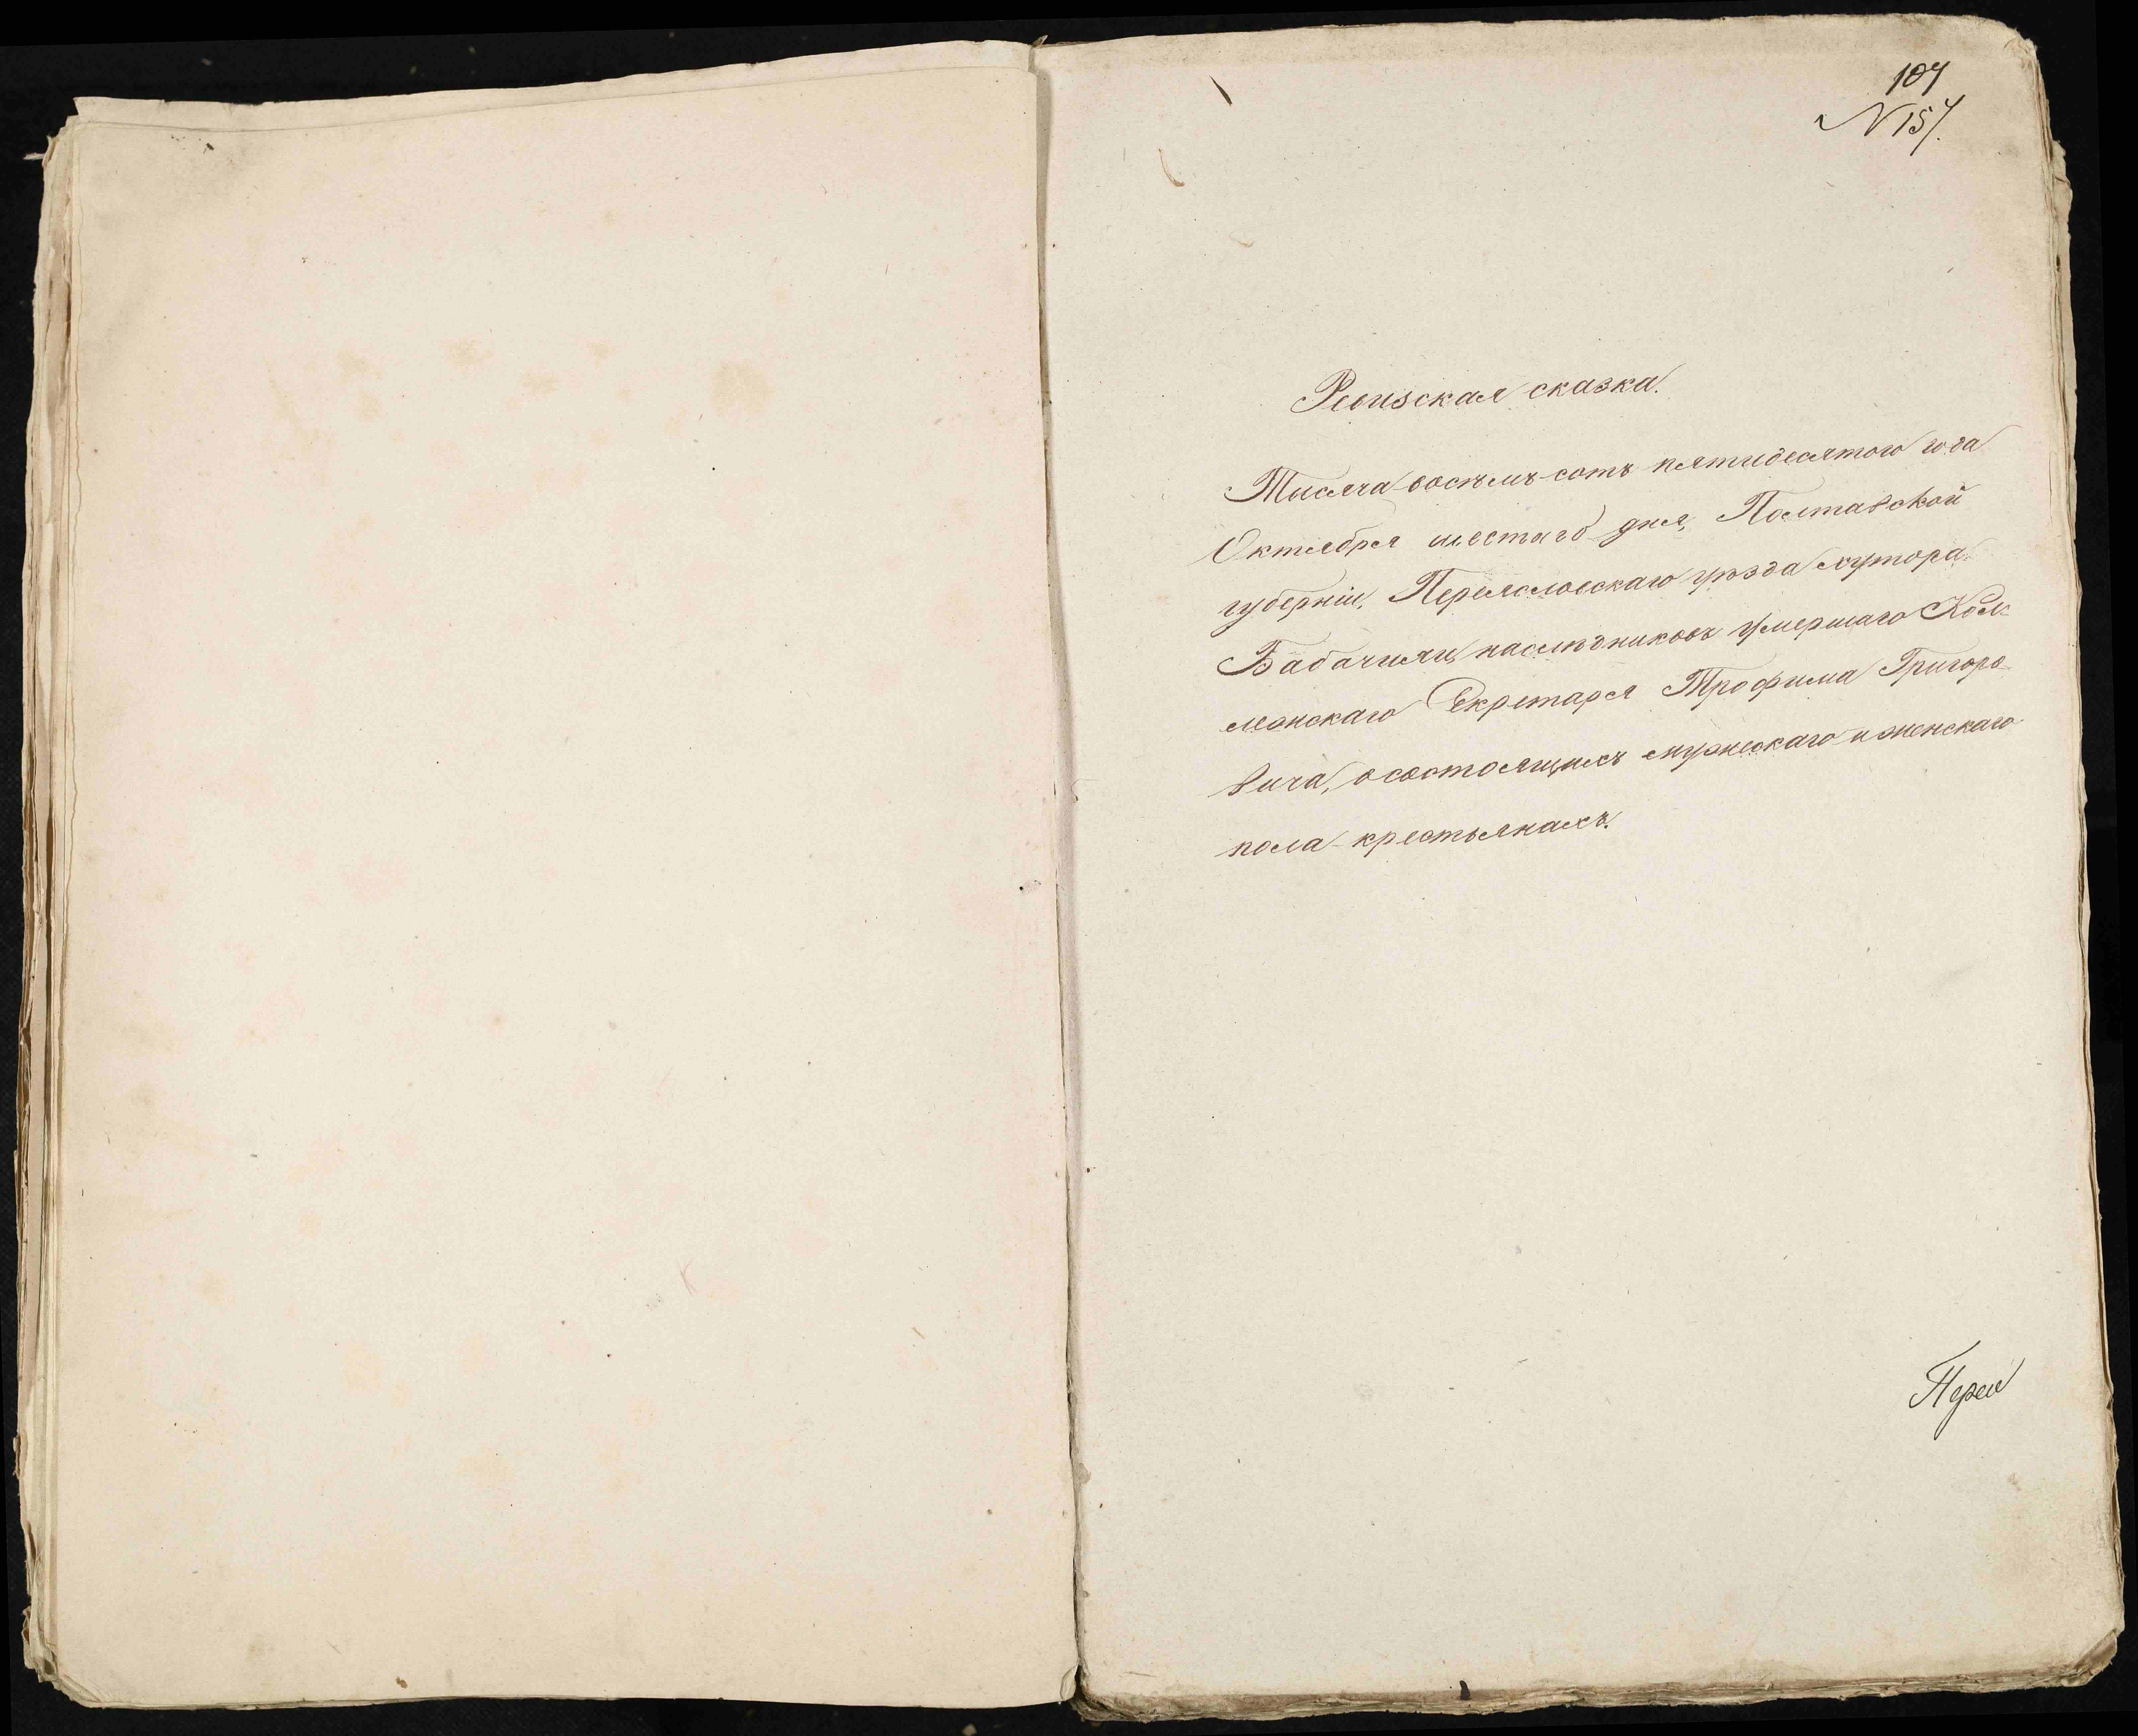 107
N 157.
Ревизская сказка.
Тысяча восемь-сотъ пятидесятого года
Октября шестаго дня, Полтавской
губерніи, Переяславскаго уѣзда хутора
наслѣдниковъ умершаго Кол-
Секретаря Трофима Григоро-
вича, о состоящихъ мужескаго и женскаго
пола крестьянахъ.